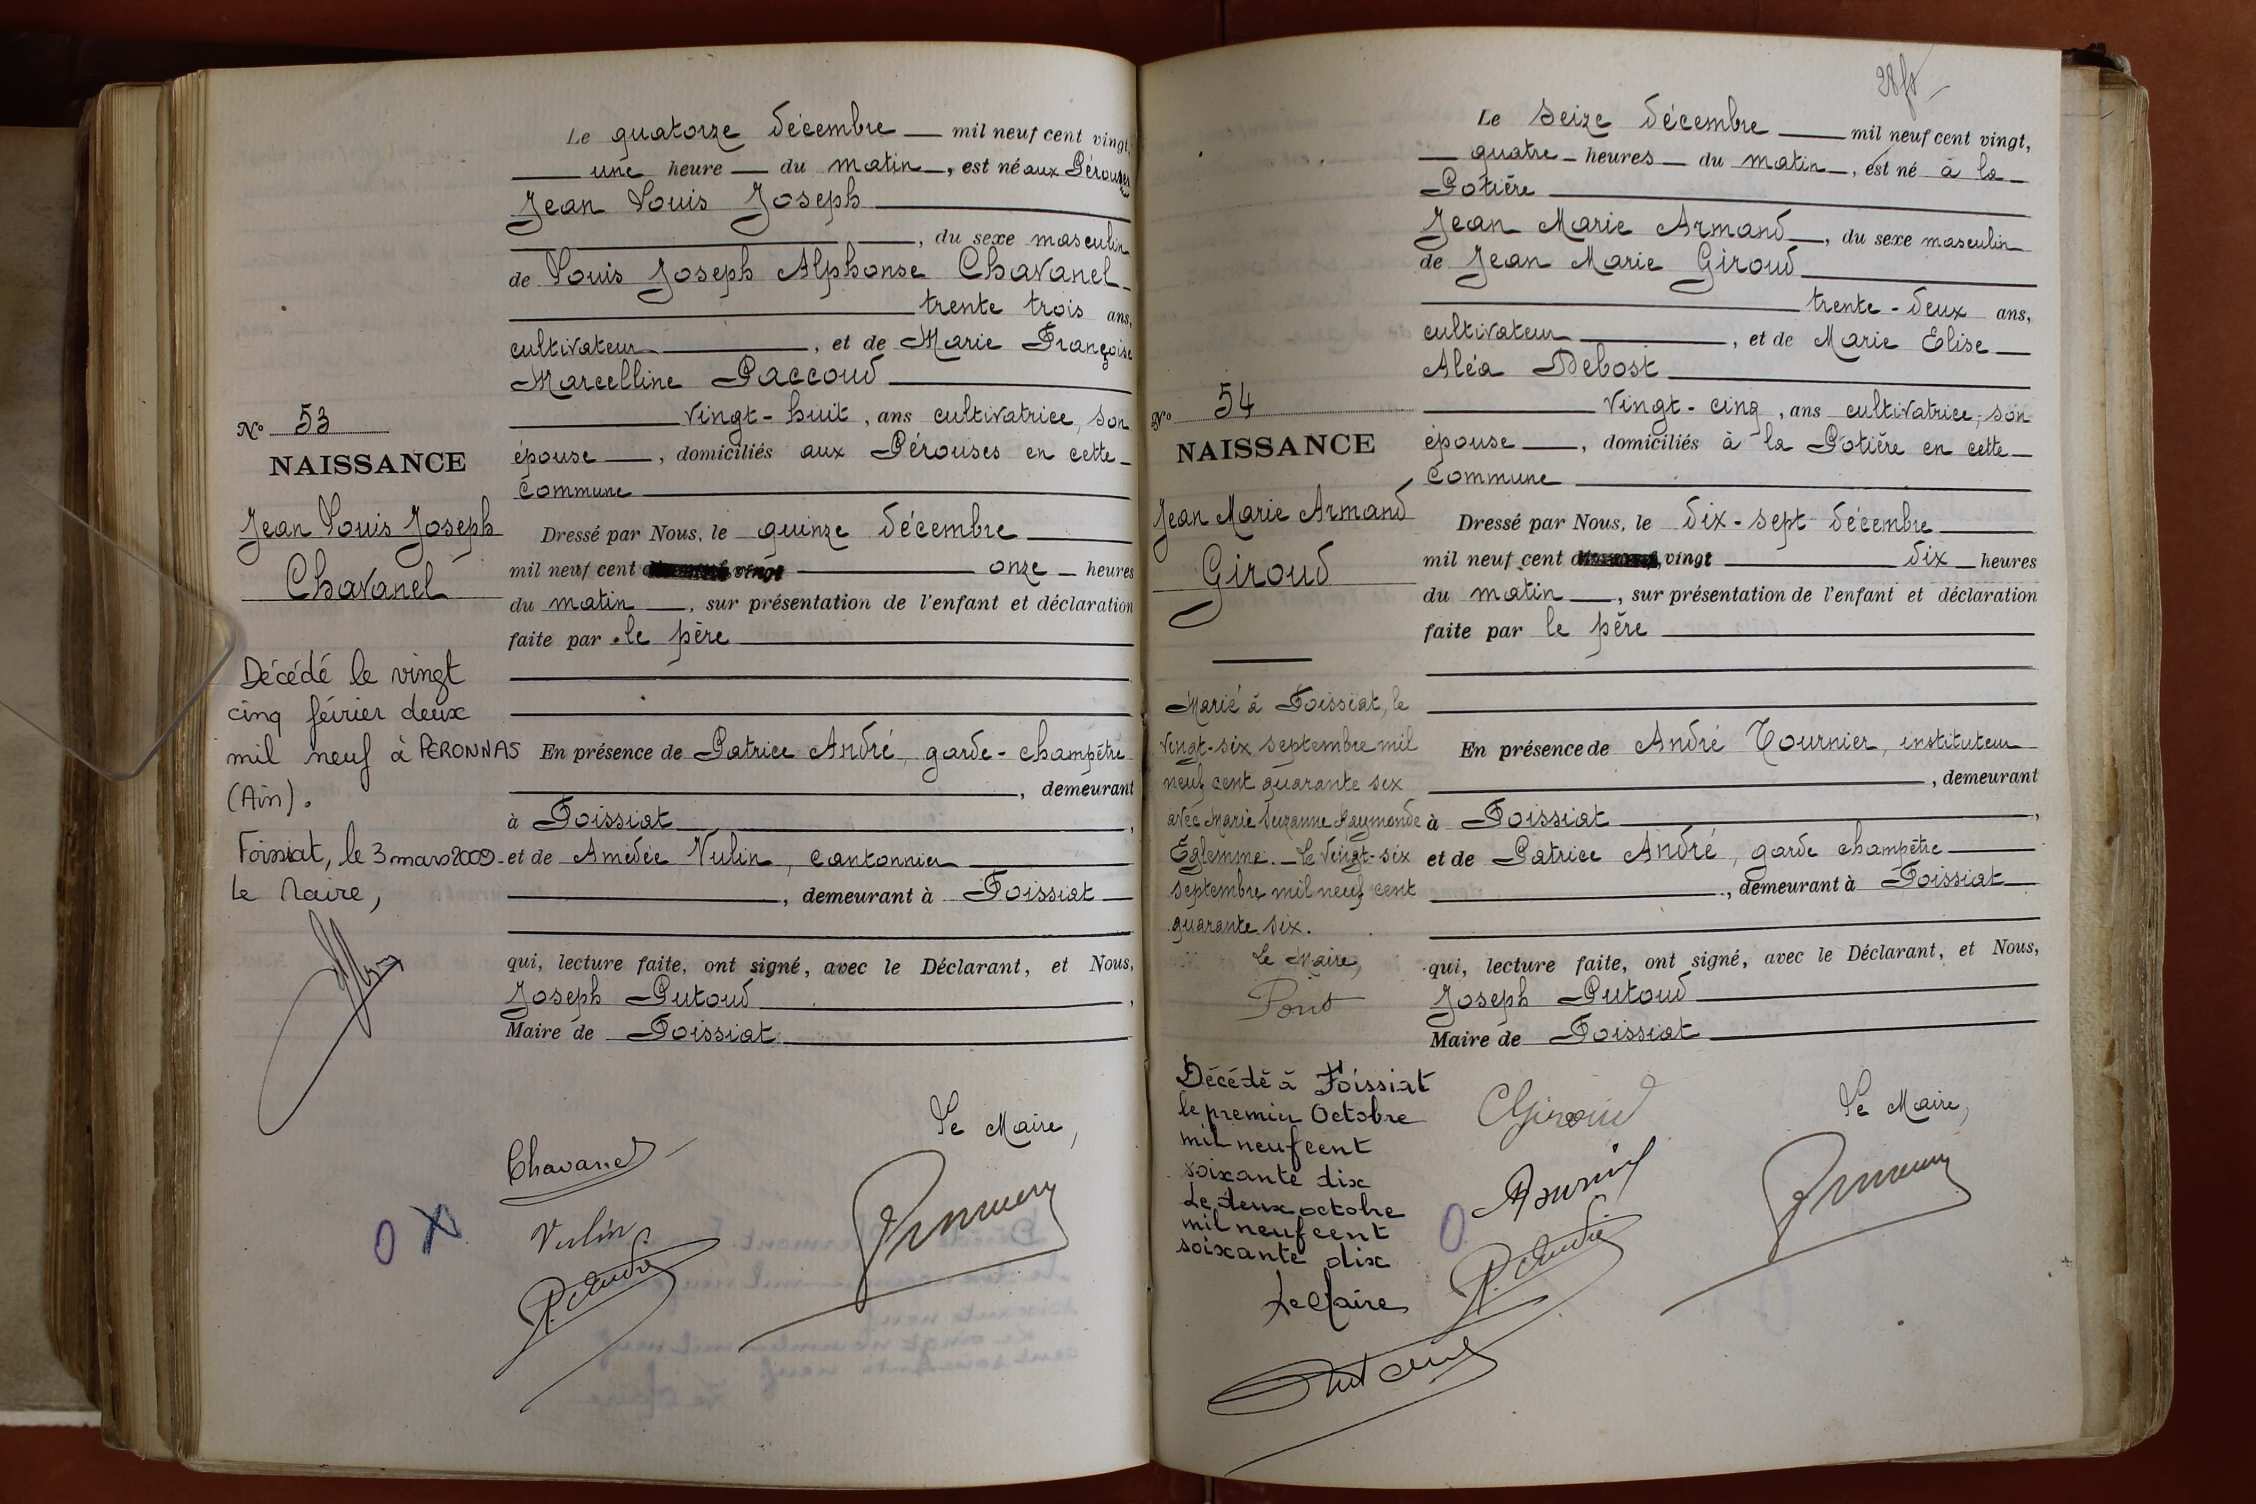 Le quatorze décembre mil neuf cent vingt,
une heure du matin, est né aux Pérouses
Jean Louis Joseph
, du sexe masculin
de Louis Joseph Alphonse Chavanel
trente trois ans,
cultivateur, et de Marie Françoise
Marcelline Paccoud
vingt-huit, ans cultivatrice, son
épouse, domiciliés aux Pérouses en cette
Commune
Dressé par Nous, le quinze décembre
mil neuf cent vingt onze heures
du matin, sur présentation de l'enfant et déclaration
faite par le père
En présence de Patrice André, garde-champêtre
, demeurant
à Foissiat,
et de Amédée Vulin, cantonnier
, demeurant à Foissiat
qui, lecture faite, ont signé, avec le Déclarant, et Nous,
Joseph Putoud,
Maire de Foissiat
Le Maire,
Chavanel
Vulin
P. André
No 53
NAISSANCE
Jean Louis Joseph
Chavanel
Décédé le vingt
cinq février deux
mil neuf à PERONNAS
(Ain).
Foissiat, le 3 mars 2009
Le Maire,
O X
Le seize décembre mil neuf cent vingt,
quatre heures du matin, est né à la
Potière
Jean Marie Armand, du sexe masculin
de Jean Marie Giroud
trente-deux ans,
cultivateur, et de Marie Elise
Aléa Debost
vingt-cinq, ans cultivatrice, son
épouse, domiciliés à la Potière en cette
Commune
Dressé par Nous, le dix-sept décembre
mil neuf cent vingt dix heures
du matin, sur présentation de l'enfant et déclaration
faite par le père
En présence de André Tournier, instituteur
, demeurant
à Foissiat,
et de Patrice André, garde champêtre
, demeurant à Foissiat
qui, lecture faite, ont signé, avec le Déclarant, et Nous,
Joseph Putoud
Maire de Foissiat
Giroud
Le Maire,
P. André
No 54
NAISSANCE
Jean Marie Armand
Giroud
Marié à Foissiat, le
vingt-six septembre mil
neuf cent quarante six
avec Marie Suzanne Raymonde
Eglemme. Le vingt-six
septembre mil neuf cent
quarante six.
Le Maire,
Pont
Décédé à Foissiat
le premier Octobre
mil neuf cent
soixante dix
Le deux octobre
mil neuf cent
soixante dix
Le Maire
O